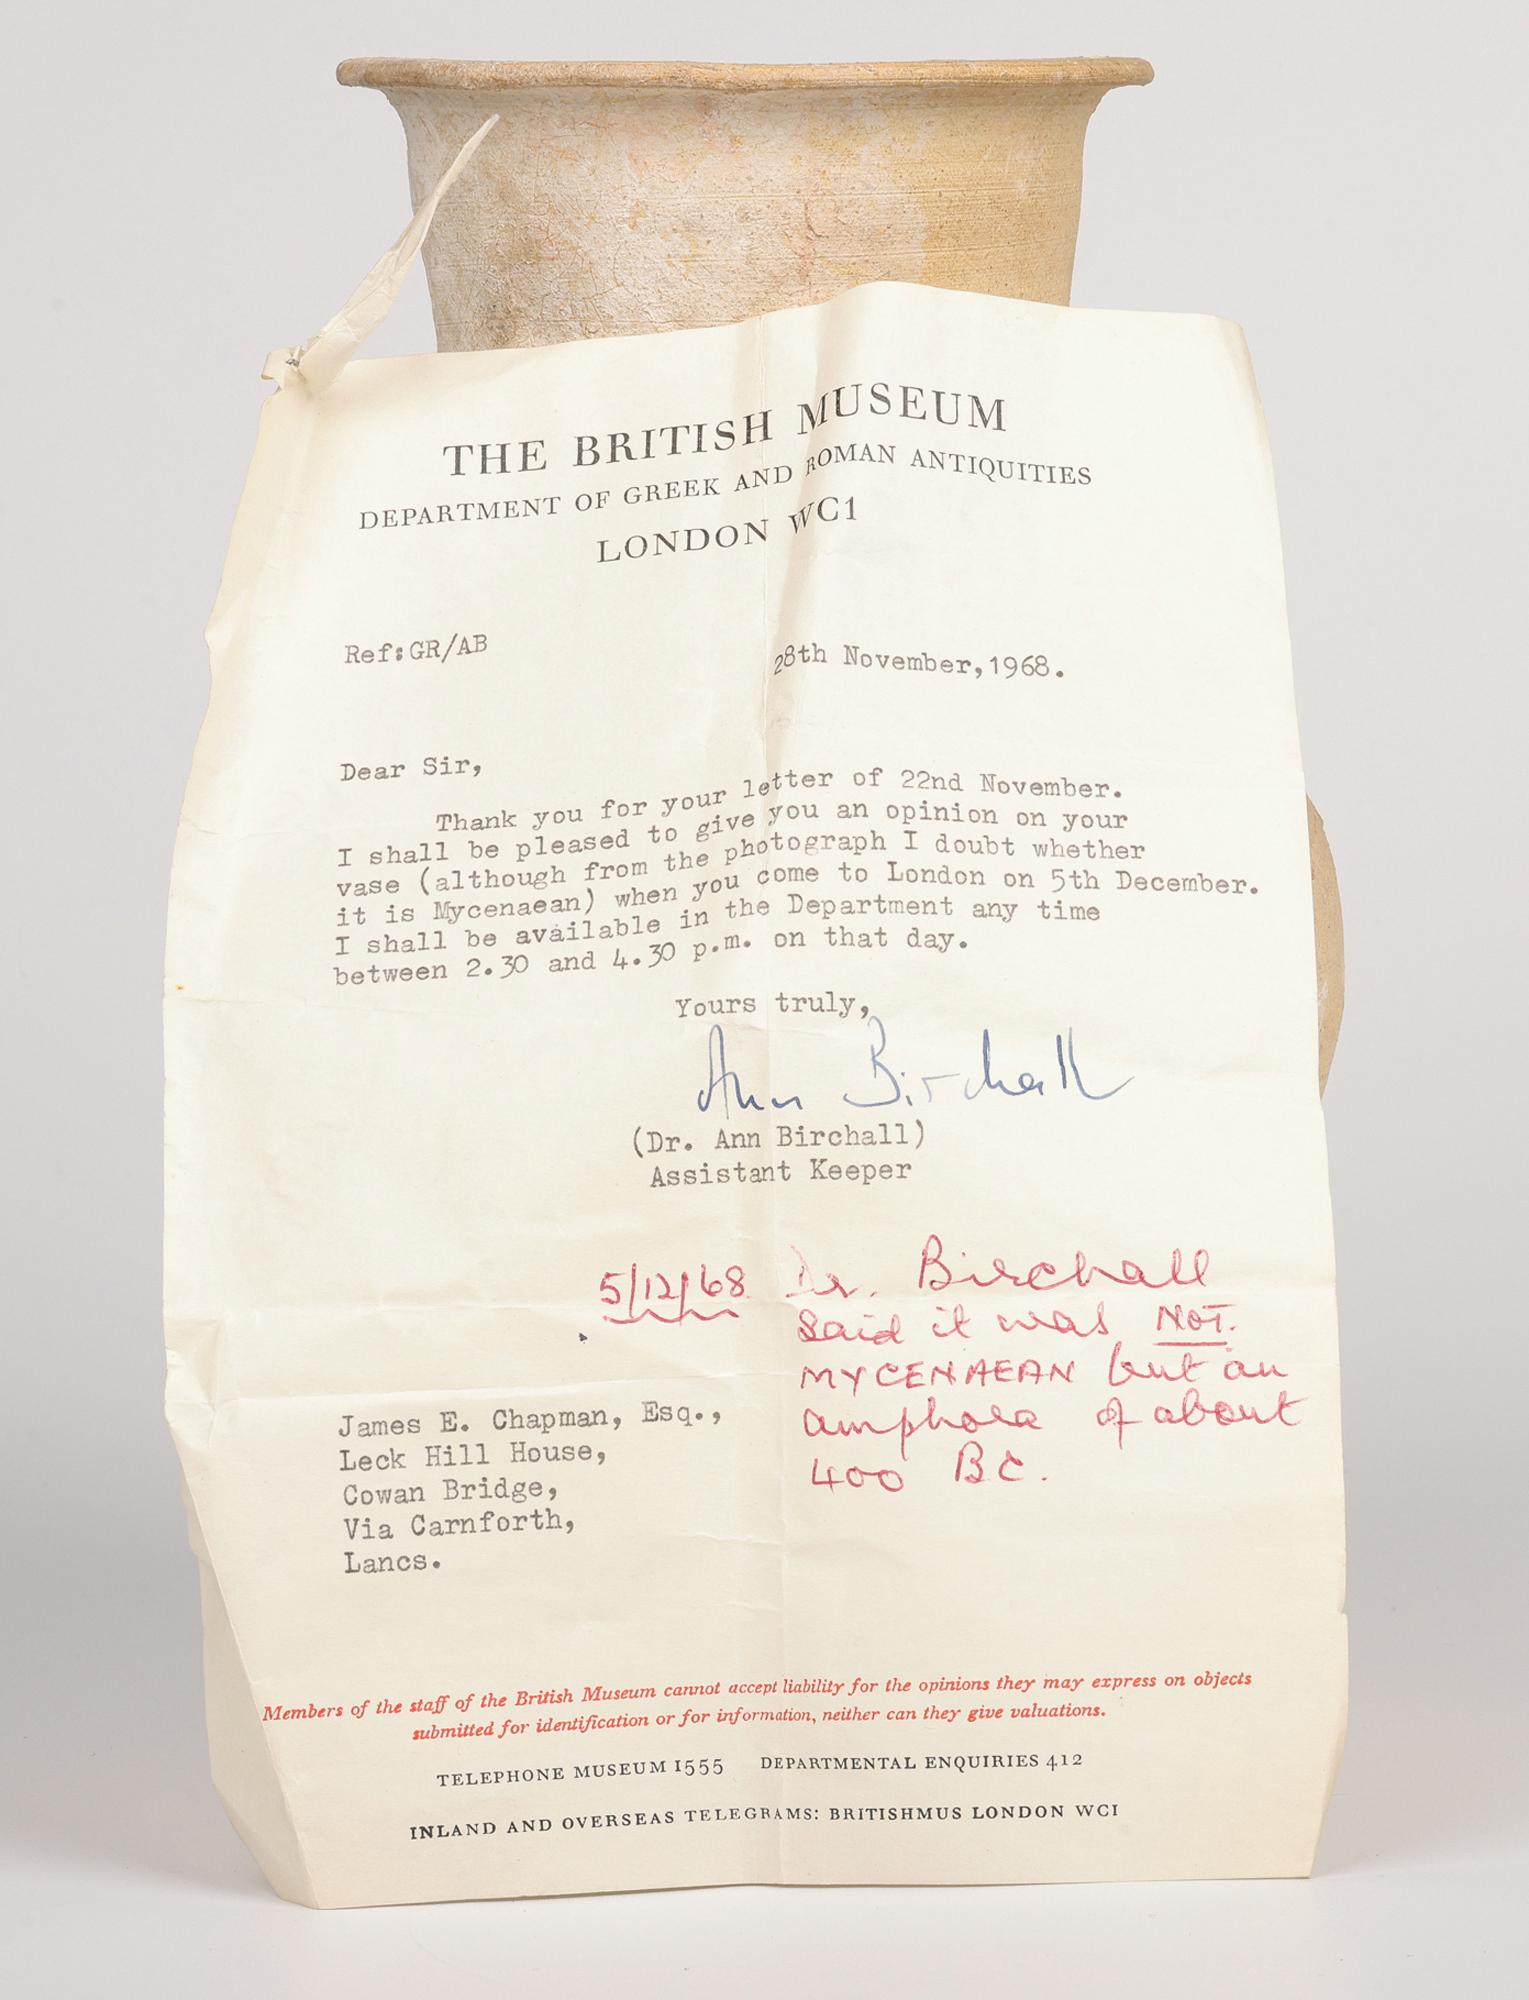 THE BRITISH MUSEUM
DEPARTMENT OF GREEK AND ROMAN ANTIQUITIES
LONDON WC1
Ref:GR/AB
28th November,1968.
Dear Sir,
Thank you for your letter of 22nd November.
I shall be pleased to give you an opinion on your
vase (although from the photograph I doubt whether
it is Mycenaean) when you come to London on 5th December.
I shall be available in the Department any time
between 2.30 and 4.30 p.m. on that day.
Yours truly,
Ann Birchall
(Dr. Ann Birchall)
Assistant Keeper
5/12/68 Dr. Birchall
said it was NOT.
MYCENAEAN but an
amphora of about
400 BC.
James E. Chapman, Esq.,
Leck Hill House,
Cowan Bridge,
Via Carnforth,
Lancs.
Members of the staff of the British Museum cannot accept liability for the opinions they may express on objects
submitted for identification or for information, neither can they give valuations.
TELEPHONE MUSEUM 1555 DEPARTMENTAL ENQUIRIES 412
INLAND AND OVERSEAS TELEGRAMS: BRITISHMUS LONDON WC1